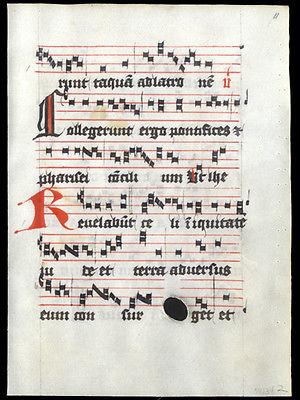 erunt taquā adlatro nē ii
Collegerunt ergo pontifices et
pharisei cōcili um Ut ihe
Revelabūt ce li īiquitatē
iu de et terra adversus
eum con sur get et